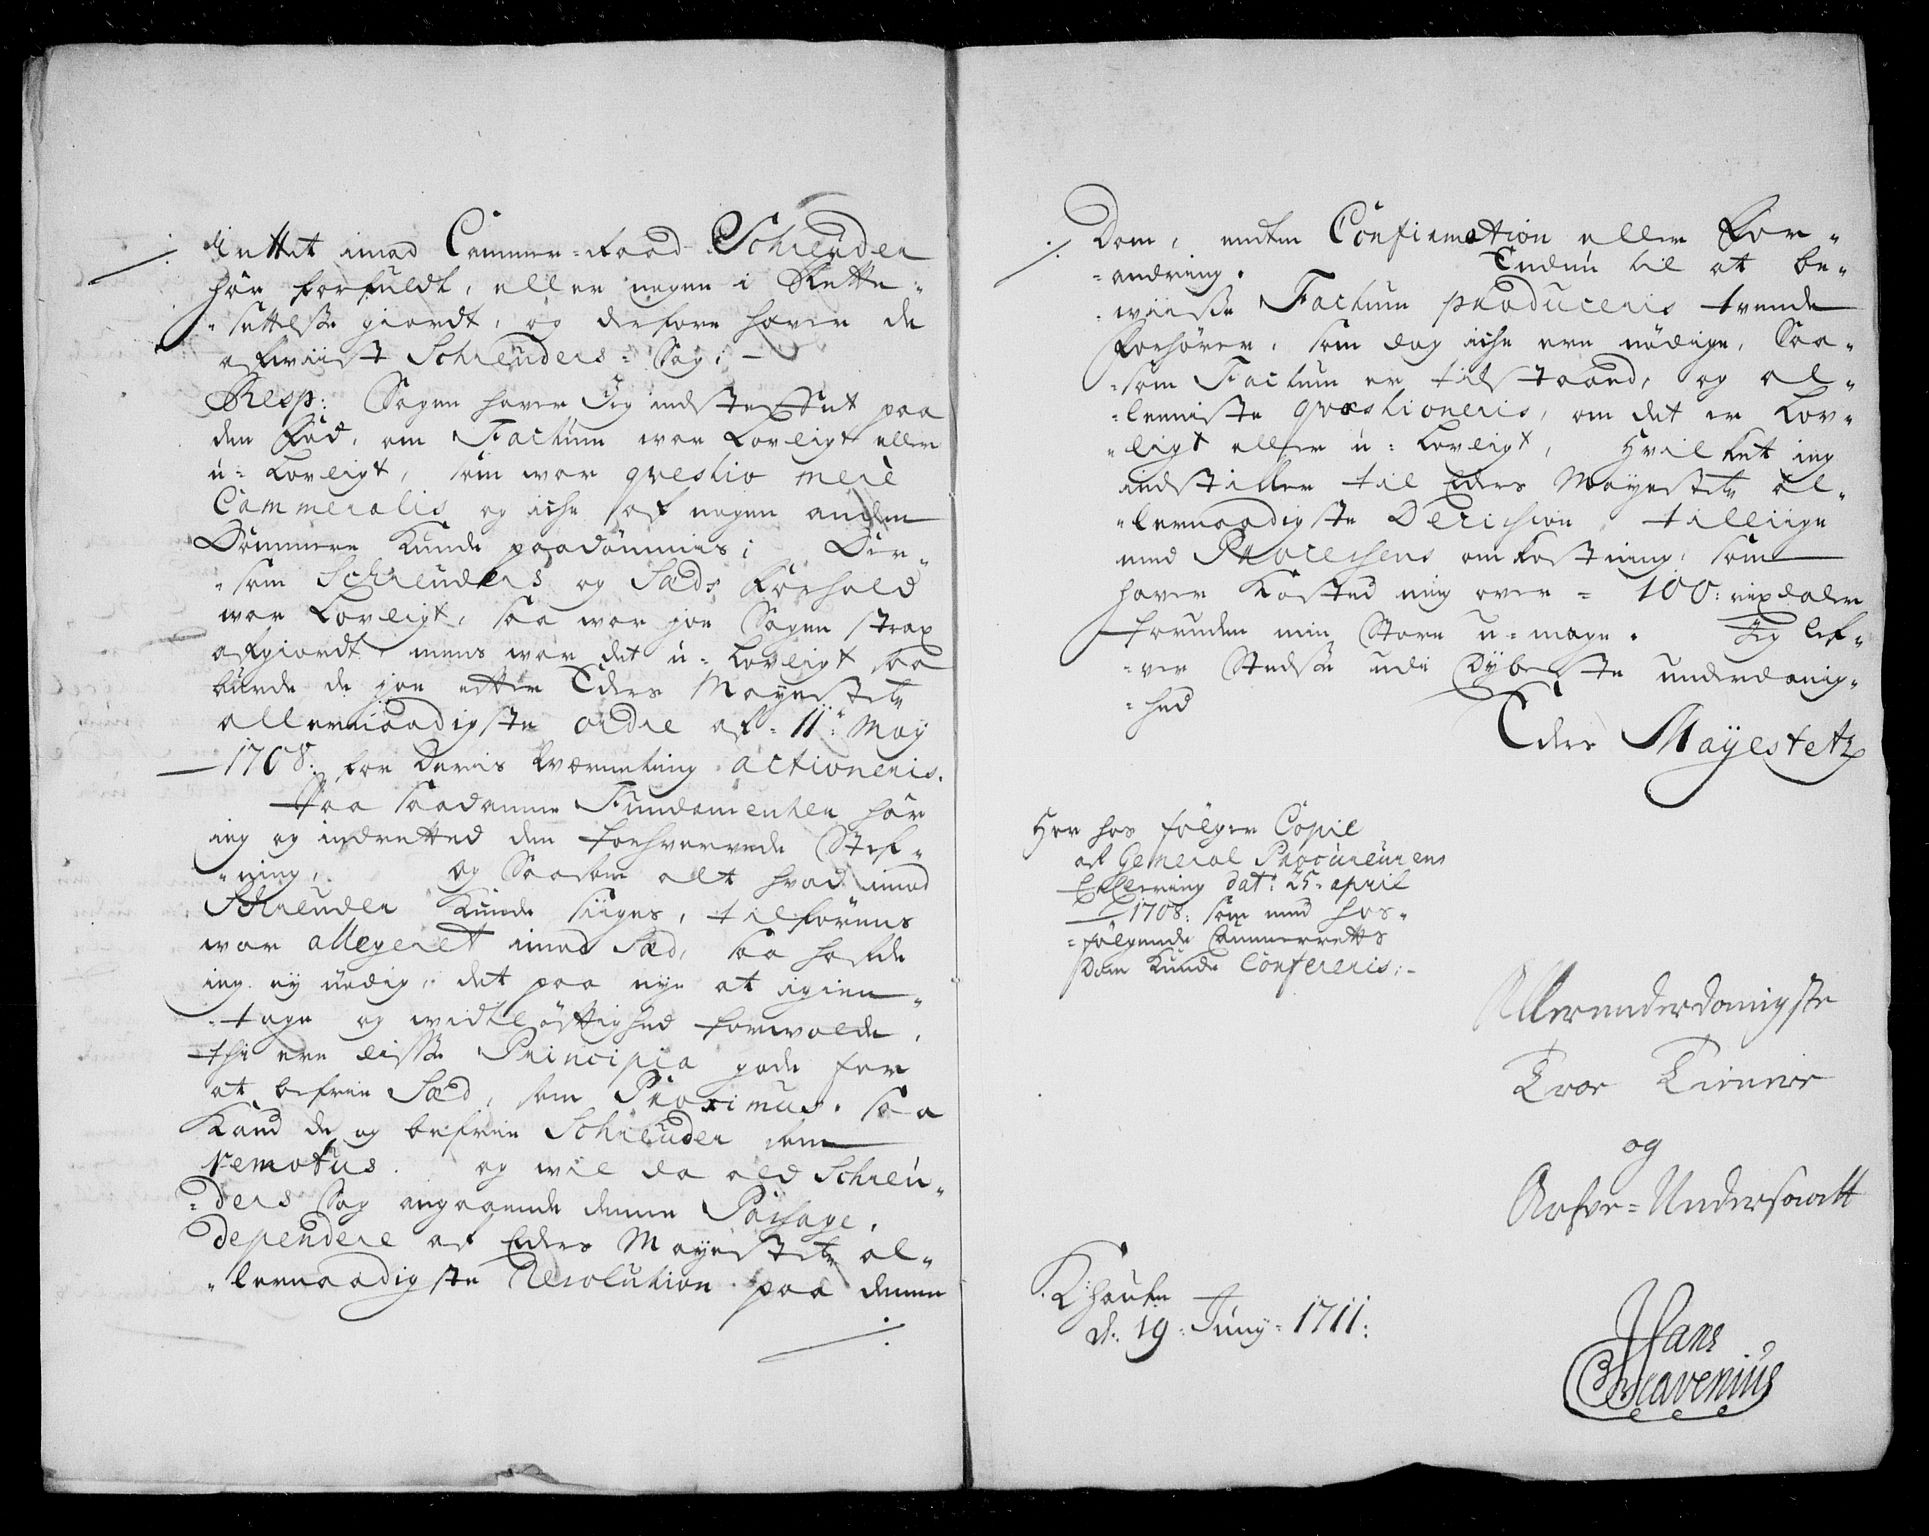 rettet imod Cammer-Raad Schreuder
hår forfuldt, eller nogen i Rette-
settelse giordt, og derfore haver de
afviist Schreuders Sag; —
Resp: Sagen haver Jeg indsteffnet paa
den Fod, om Factum var Lovligt eller
u-Lovligt, som var qvestio mere
Cammeralis og iche af nogen anden
Dommere Kunde paadömmis; Der-
som Schreuders og Sæds Forhold
var Lovligt, saa var jo Sagen strax
afgiordt, mens var det u-Lovligt saa
burde de joe efter Eders Mayestets
allernaadigste ordre af 11 May
1708: for deris Værneting actioneris.
Paa saadanne Fundamenter hår
ieg og indretted den forhvervede Stef-
ning, og Saasom alt hvad imod
Schreuder Kunde siiges, tilforens
var allegeret imod Sæd, saa hafde
ieg ey nödig, det paa nye at igien-
tage og vidtløftighed forvolde,
thi ere disse Principia gode for
at befrie Sæd, som Proximus, saa
Kand de og befrie Schreuder som
remotus. og vil da ald Schreu-
ders Sag angaaende denne Passage,
dependere af Eders Mayestets al-
lernaadigste Resolution paa denne
Dom, enten Confirmation eller For-
andring. Endnu til at be-
viise Factum produceris tvende
Forhörer, som dog iche ere nödige, Saa-
som Factum er tilstaaed, og al-
leniste qvæstioneris, om det er Lov-
ligt eller u-Lovligt, Hvilket ieg
indstiller til Eders Mayestets al-
lernaadigste Decision, tilliige
med Processens omkostning, som
haver Kosted mig over 100: rixdaler
foruden min Store u-mage. Jeg lef-
ver Stedse udi Dybeste underdanig-
hed
Eders Mayestets
Her hos følger Copie
af General Procureurens
Erklering dat: 25 april
1708: som med hos-
følgende Cammerretts
Dom Kunde Confereris:-
Allerunderdanigste
Troe Tienere
og
Arfve-Undersaatt
K:hafn
d: 19 Juny 1711:
Hans
Scavenius